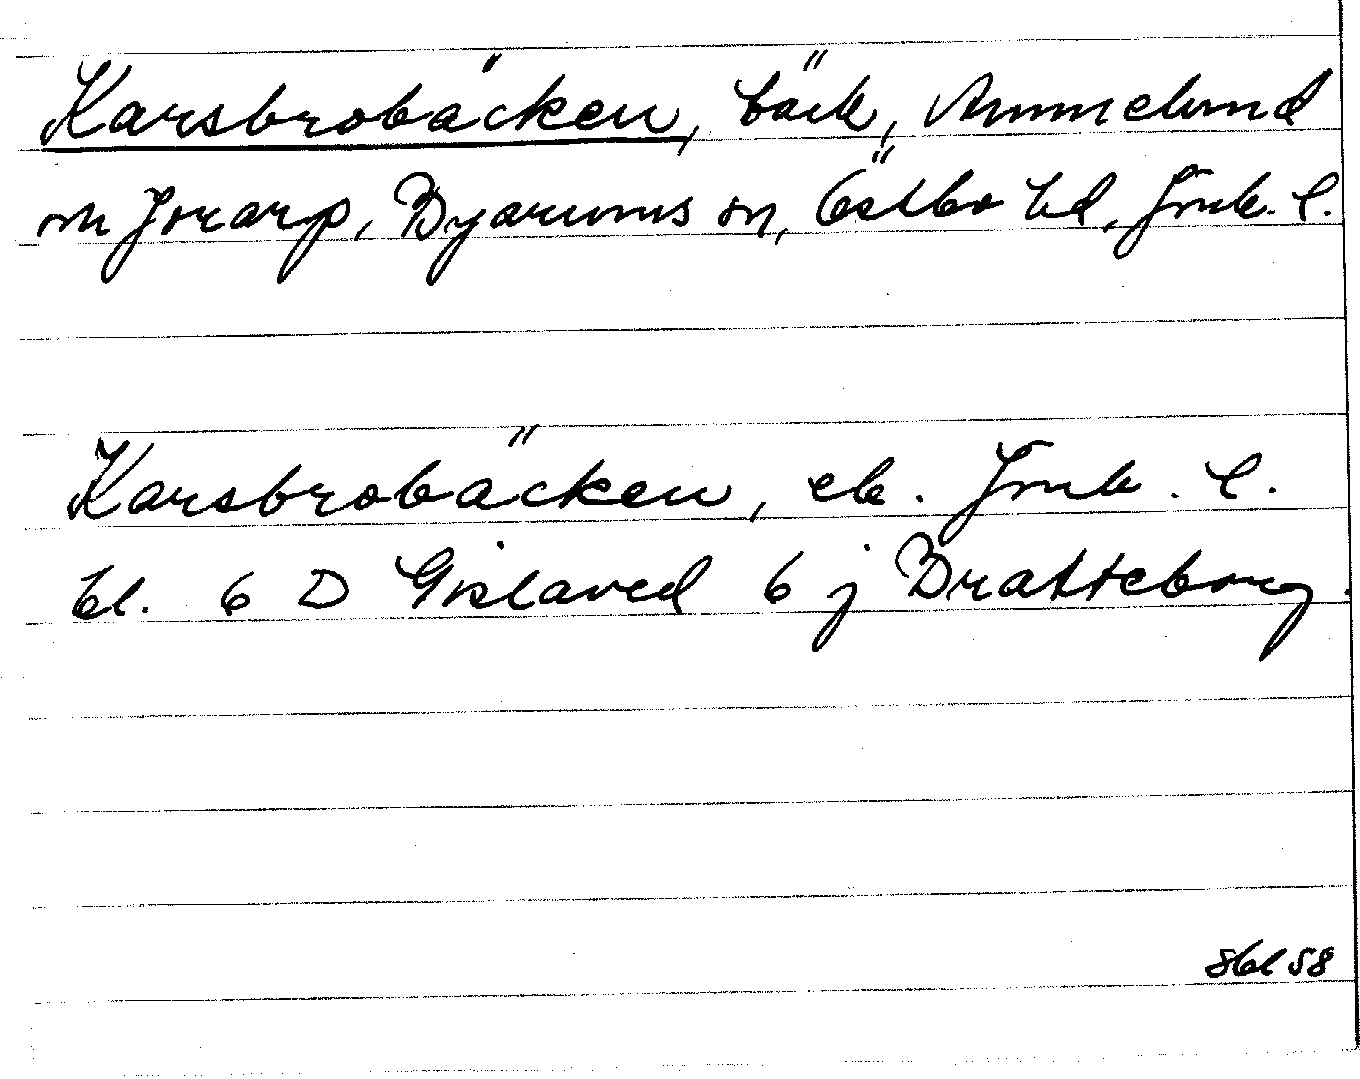 Karsbrobäcken, bäck, Ammelund
m Jorarp, Byarums sn, Östbo hd, Jmk. l.
Karsbrobäcken, ek. Jmk. l.
bl. 6 D Gislaved 6 j Bratteborg.